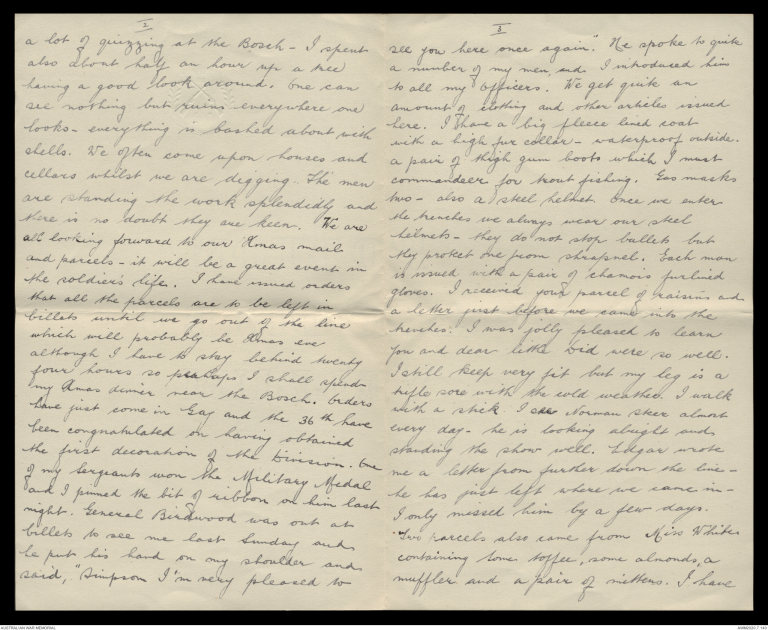 2
a lot of quizzing at the Bosch - I spent
also about half an hour up a tree
having a good look around. One can
see nothing but ruins everywhere one
looks - everything is bashed about with
shells. We often come upon houses and
cellars whilst we are digging. The men
are standing the work splendidly and
there is no doubt they are keen. We are
all looking forward to our Xmas mail
and parcels - it will be a great event in
the soldier's life. I have issued orders
that all the parcels are to be left in
billets until we go out of the line
which will probably be Xmas eve
although I have to stay behind twenty
four hours so perhaps I shall spend
my Xmas dinner near the Bosch. Orders
have just come in Gay and the 36th have
been congratulated on having obtained
the first decoration of the Division. One
of my Sergeants won the Military Medal
and I pinned the bit of ribbon on him last
night. General Birdwood was out at
billets to see me last Sunday and
he put his hand on my shoulder and
said, "Simpson I'm very pleased to
3
see you here once again". He spoke to quite
a number of my men, and I introduced him
to all my officers. We get quite an
amount of clothing and other articles issued
here. I have a big fleece lined coat
with a high fur collar - waterproof outside.
a pair of thigh gum boots which I must
commandeer for trout fishing. Gas masks
two - also a steel helmet. Once we enter
the trenches we always wear our steel
helmets - they do not stop bullets but
they protect one from shrapnel. Each man
is issued with a pair of chamois furlined
gloves. I received your parcel of raisins and
a letter just before we came into the
trenches. I was jolly pleased to learn
you and dear little Did were so well.
I still keep very fit but my leg is a
trifle sore with the cold weather. I walk
with a stick. I see Norman skee almost
every day - he is looking alright and
standing the show well. Edgar wrote
me a letter from further down the line -
he has just left where we came in -
I only missed him by a few days.
Two parcels also came from Miss White
containing some toffee, some almonds, a
muffler and a pair of mittens. I have
AUSTRALIAN WAR MEMORIAL